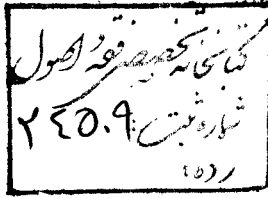 کتابخانه تخصصی فقه و اصول
شماره ثبت: ۲۴۵۰۹